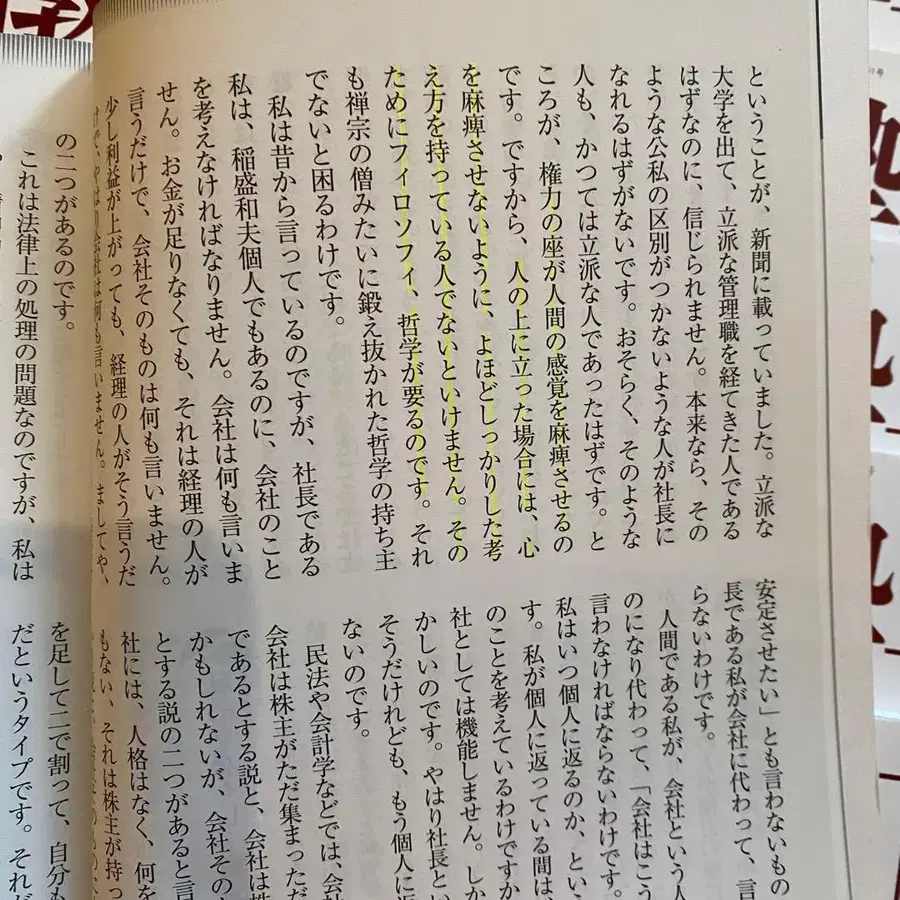 ということが、新聞に載っていました。立派な
大学を出て、立派な管理職を経てきた人である
はずなのに、信じられません。本来なら、その
ような公私の区別がつかないような人が社長に
なれるはずがないです。おそらく、そのような
人も、かつては立派な人であったはずです。と
ころが、権力の座が人間の感覚を麻痺させるの
です。ですから、人の上に立った場合には、心
を麻痺させないように、よほどしっかりした考
え方を持っている人でないといけません。その
ためにフィロソフィ、哲学が要るのです。それ
も禅宗の僧みたいに鍛え抜かれた哲学の持ち主
でないと困るわけです。
私は昔から言っているのですが、社長である
私は、稲盛和夫個人でもあるのに、会社のこと
を考えなければなりません。会社は何も言いま
せん。お金が足りなくても、それは経理の人が
言うだけで、会社そのものは何も言いません。
少し利益が上がっても、経理の人がそう言うだ
けで、やはり会社は何も言いません。ましてや、
安定させたい」とも言わないもの
長である私が会社に代わって、言
らないわけです。
人間である私が、会社という人
のになり代わって、「会社はこう
言わなければならないわけです。
私はいつ個人に返るのか、とい
す。私が個人に返っている間は、
のことを考えているわけですか
社としては機能しません。しか
かしいのです。やはり社長とし
そうだけれども、もう個人に返
ないのです。
民法や会計学などでは、会社
会社は株主がただ集まっただ
であるとする説と、会社は株
かもしれないが、会社その
とする説の二つがあると言
社には、人格はなく、何を
もない、それは株主が持っ
の二つがあるのです。
これは法律上の処理の問題なのですが、私は
を足して二で割って、自分も
だというタイプです。それが